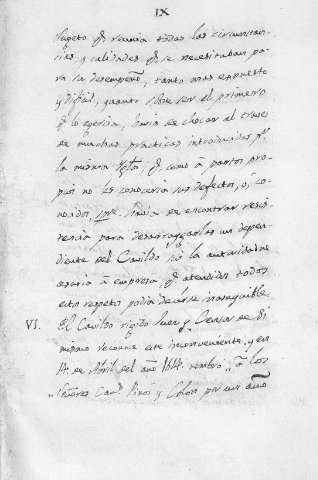 IX
sugeto q.e reunia todas las circunstan-
cias, y calidades q.e se necesitaban pa-
ra su desempeño, tanto mas expuesto
y dificil, quanto sobre ser el primero
q.e lo egercia, havia de chocar al traves
de muchas practicas introducidas p.r
la misma q.e como à partos pro-
pios no les conoceria sus defectos, ò, co-
nocidos, havia de encontrar resis-
tencia para desarraygarlas un depen-
diente del Cavildo sin la autoridad ne-
cesaria à empresa, q.e atendidos todos
estos respetos podia decirse inasequible.
VI. El Cavildo rigido Juez, y Censor de si
mismo reconoce este inconveniente, y en
14. de Abril del año nombrò à los
Señores Can.s Pinós y Colon por un año